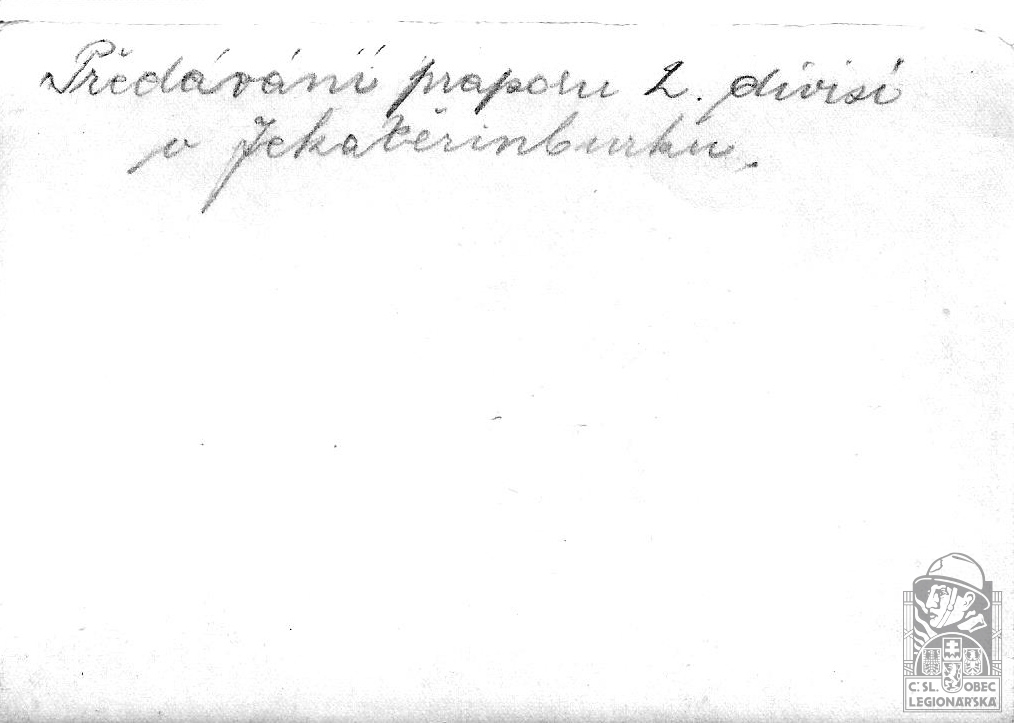 Předávání praporu 2. divisi
v Jekatěrinburku.
Č:SL. OBEC
LEGIONÁŘSKÁ